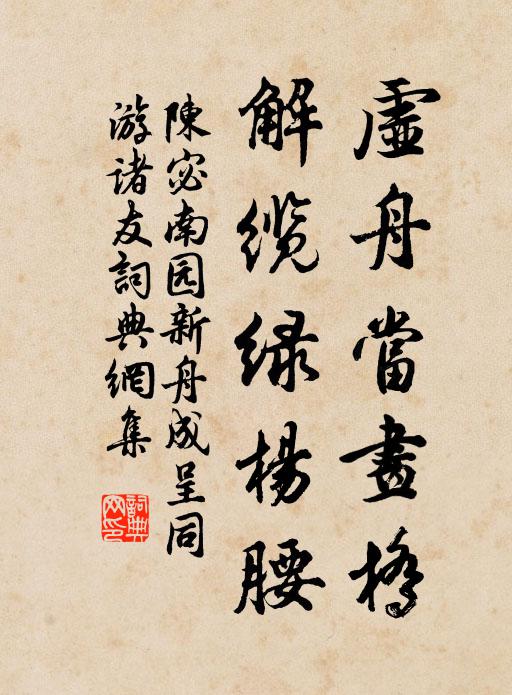 虛舟當畫橋
解纜绿楊腰
陳宓南园新舟成呈同
游诸友詞典網集
詞典网印